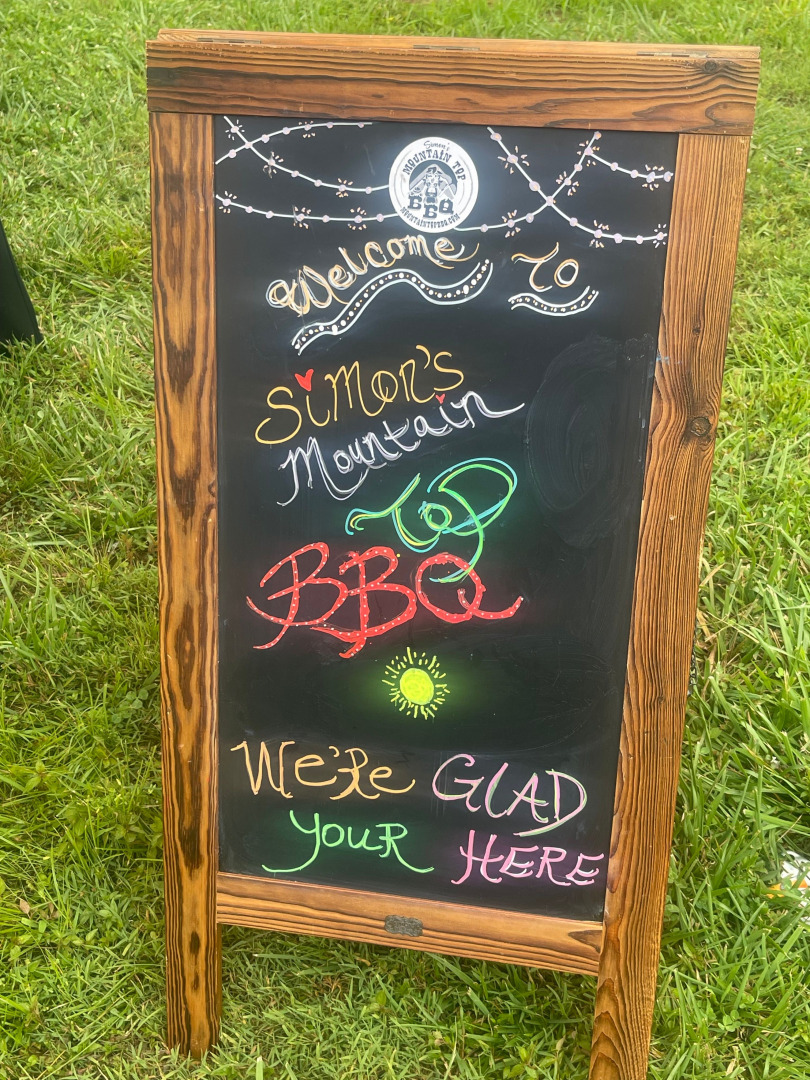 Simon's
MOUNTAIN TOP
BBQ
MOUNTAINTOPBBQ.COM
Welcome To
Simon's
Mountain
Top
BBQ
We're GLAD
YOUR HERE